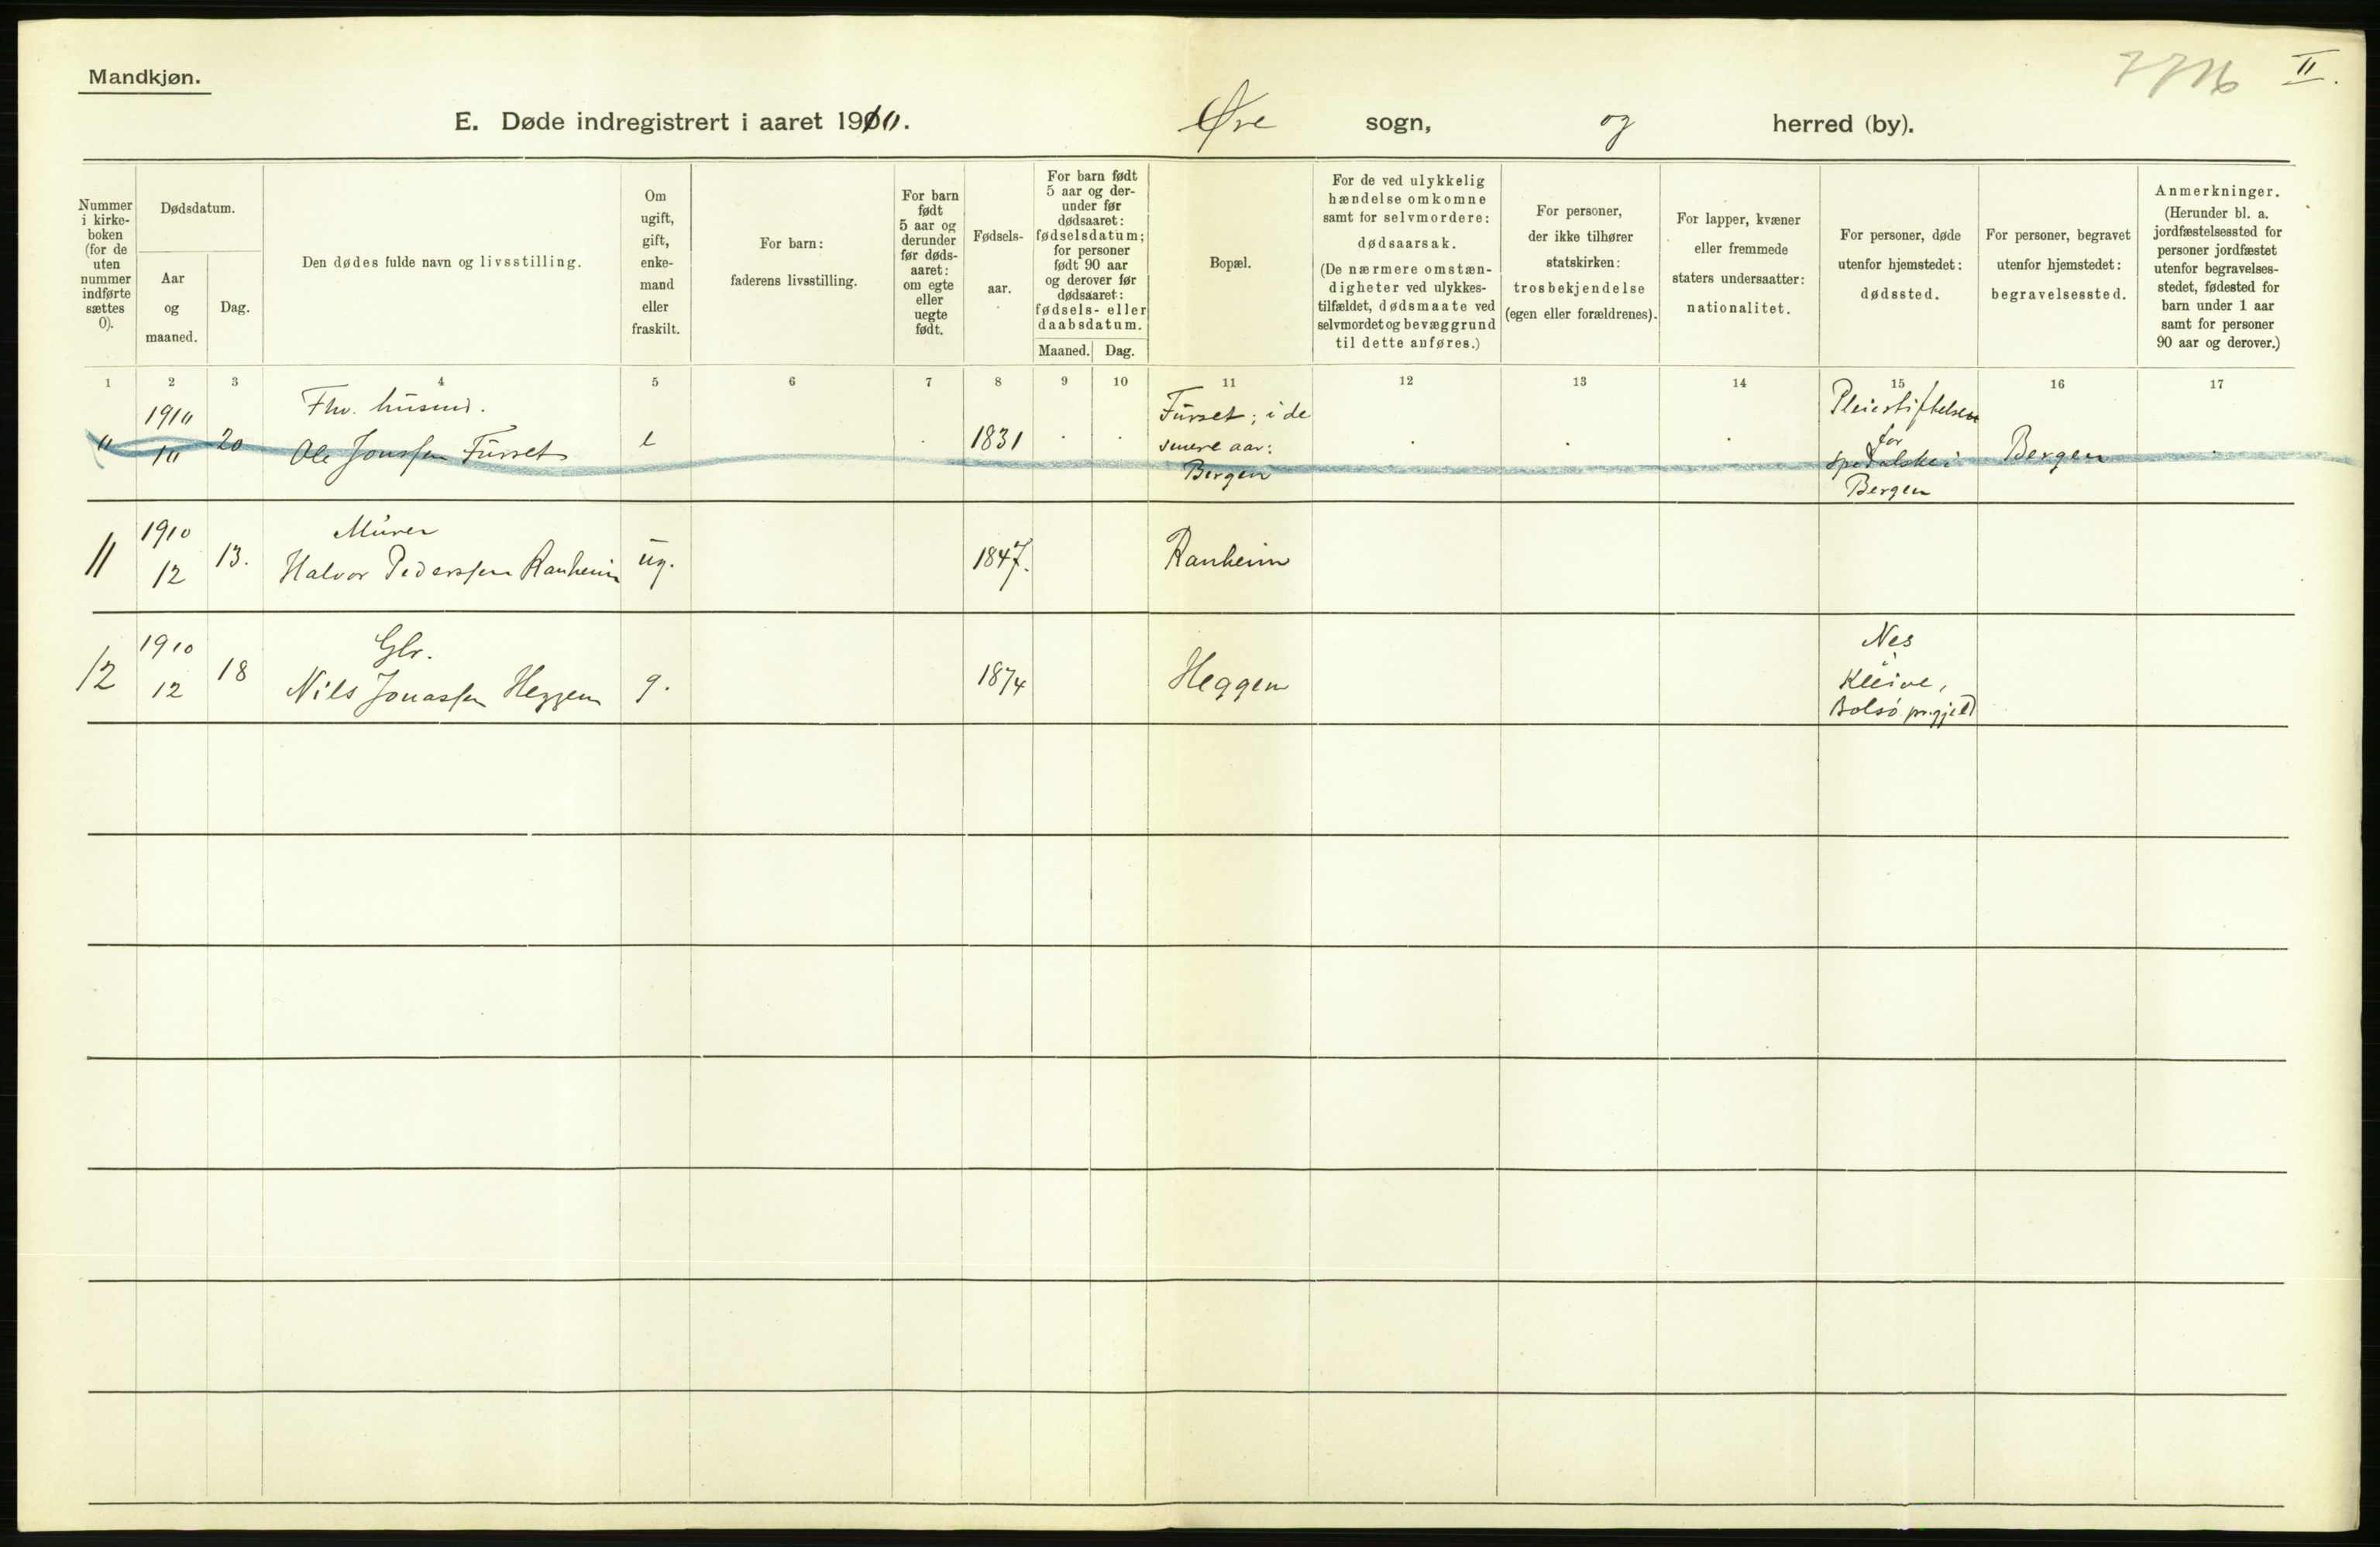 Mandkjøn.
7716 II.
E. Døde indregistrert i aaret 1910. Øre sogn, og herred (by).
Nummer i kirke- boken (for de uten nummer indførte sættes 0).
Dødsdatum.
Aar og maaned.
Dag.
Den dødes fulde navn og livsstilling.
Om ugift, gift, enke- mand eller fraskilt.
For barn: faderens livsstilling.
For barn født 5 aar og derunder før døds- aaret: om egte eller uegte født.
Fødsels- aar.
For barn født 5 aar og der- under før dødsaaret: fødselsdatum; for personer født 90 aar og derover før dødsaaret: fødsels- eller daabsdatum.
Maaned. Dag.
Bopæl.
For de ved ulykkelig hændelse omkomne samt for selvmordere: dødsaarsak. (De nærmere omstæn- digheter ved ulykkes- tilfældet, dødsmaate ved selvmordet og bevæggrund til dette anføres.)
For personer, der ikke tilhører statskirken: trosbekjendelse (egen eller forældrenes).
For lapper, kvæner eller fremmede staters undersaatter: nationalitet.
For personer, døde utenfor hjemstedet: dødssted.
For personer, begravet utenfor hjemstedet: begravelsessted.
Anmerkninger. (Herunder bl. a. jordfæstelsessted for personer jordfæstet utenfor begravelses- stedet, fødested for barn under 1 aar samt for personer 90 aar og derover.)
1 2 3 4 5 6 7 8 9 10 11 12 13 14 15 16 17
" 1910 20 Fhv. husmd.
Ole Jonssen Furset e 1831 Furset; i de
senere aar:
Bergen
Pleiestiftelsen
for
spedalske i
Bergen
Bergen
11 1910
12 13. Murer
Halvor Pederssen Ranheim ug. 1847. Ranheim
12 1910
12 18 Gbr.
Nils Jonassen Heggem g. 1874 Heggem
Nes
i
Kleive,
Bolsö pr.gjeld